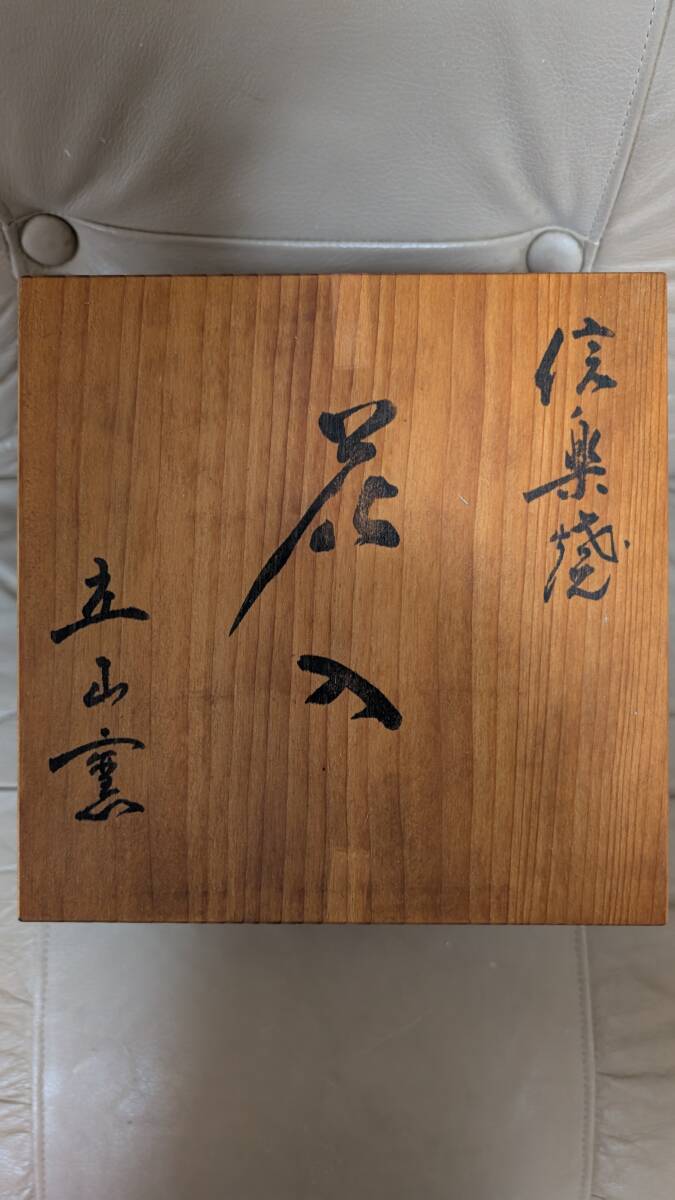 信楽焼
花入
立山窯